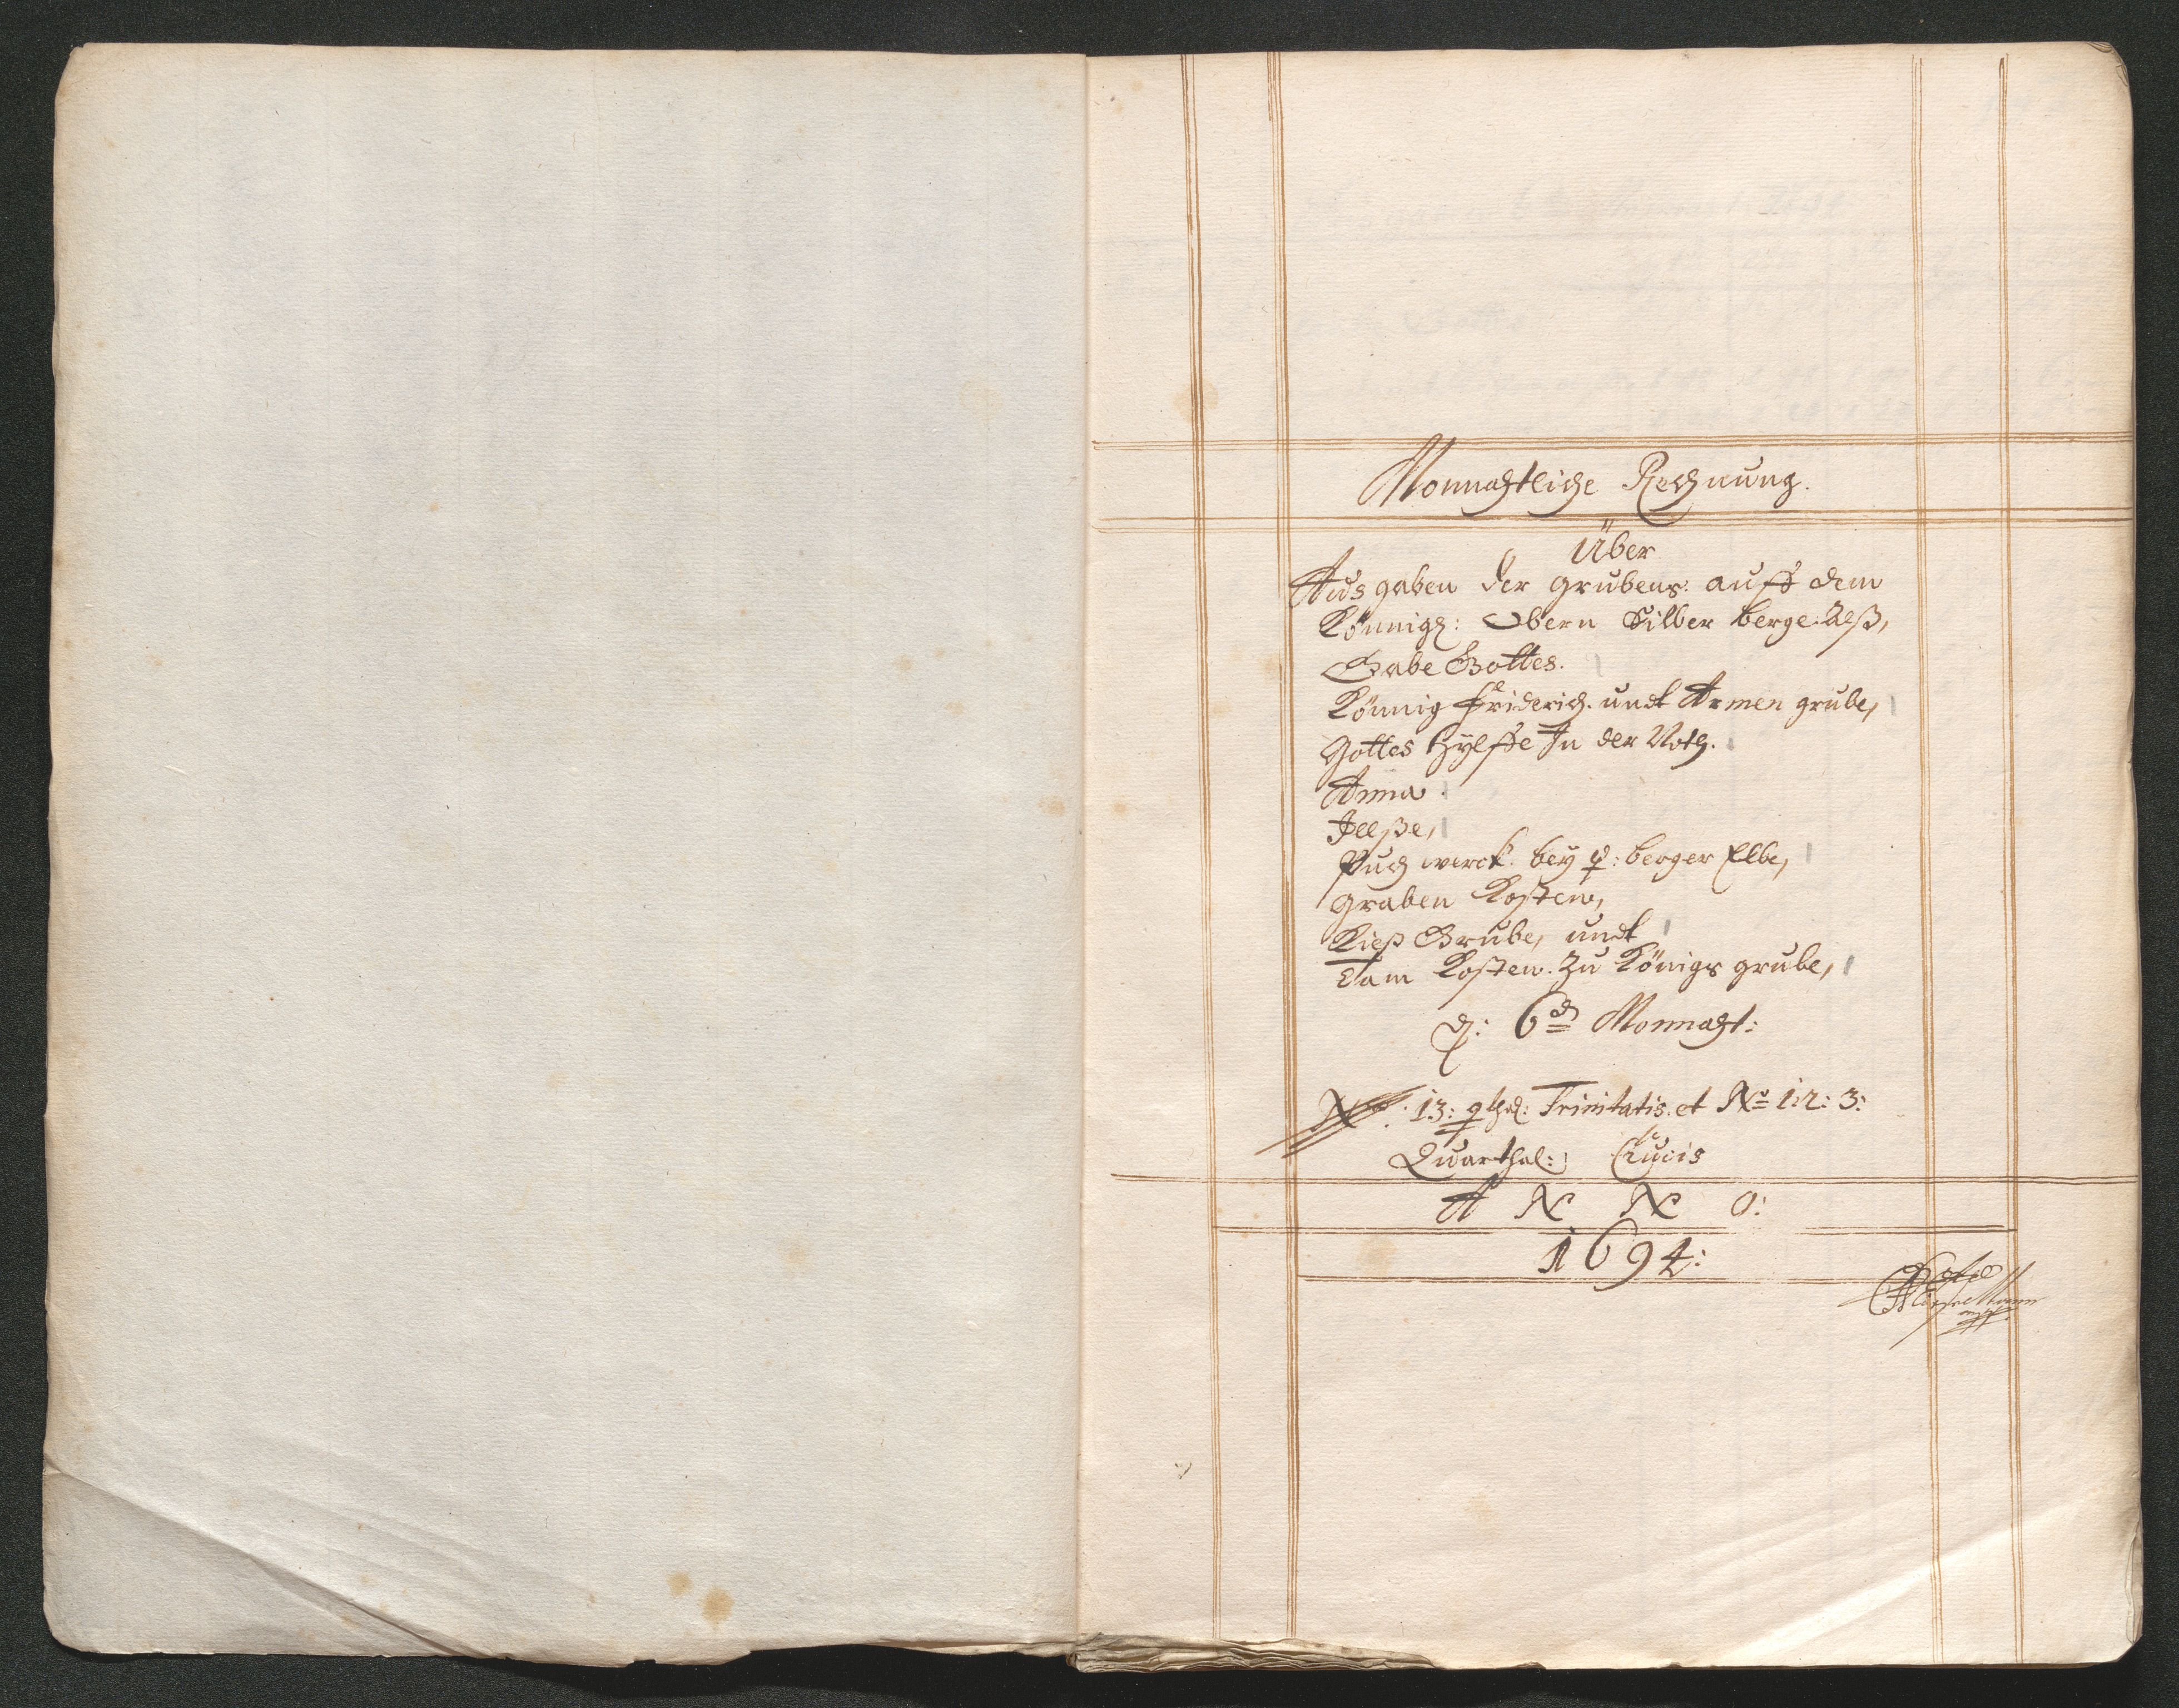 Monnahtliche Rechnung.
Über
Ausgaben der grubens: auff dem
Könnigl: Obern Silber berge: Alß,
Gabe Gottes.
Könnig Friderich. undt Armen grube,
Gottes Hylffe In der Noth.
Anna.
Illße,
Puch werck. bey berger Elbe,
graben Kosten,
Kieß Grube, undt
Dam Kosten. Zu Königs grube,
6 Monnaht:
No: 13: qthal: Trinitatis. et No 1: 2: 3:
Quarthal: Crucis
A N N O:
1694: